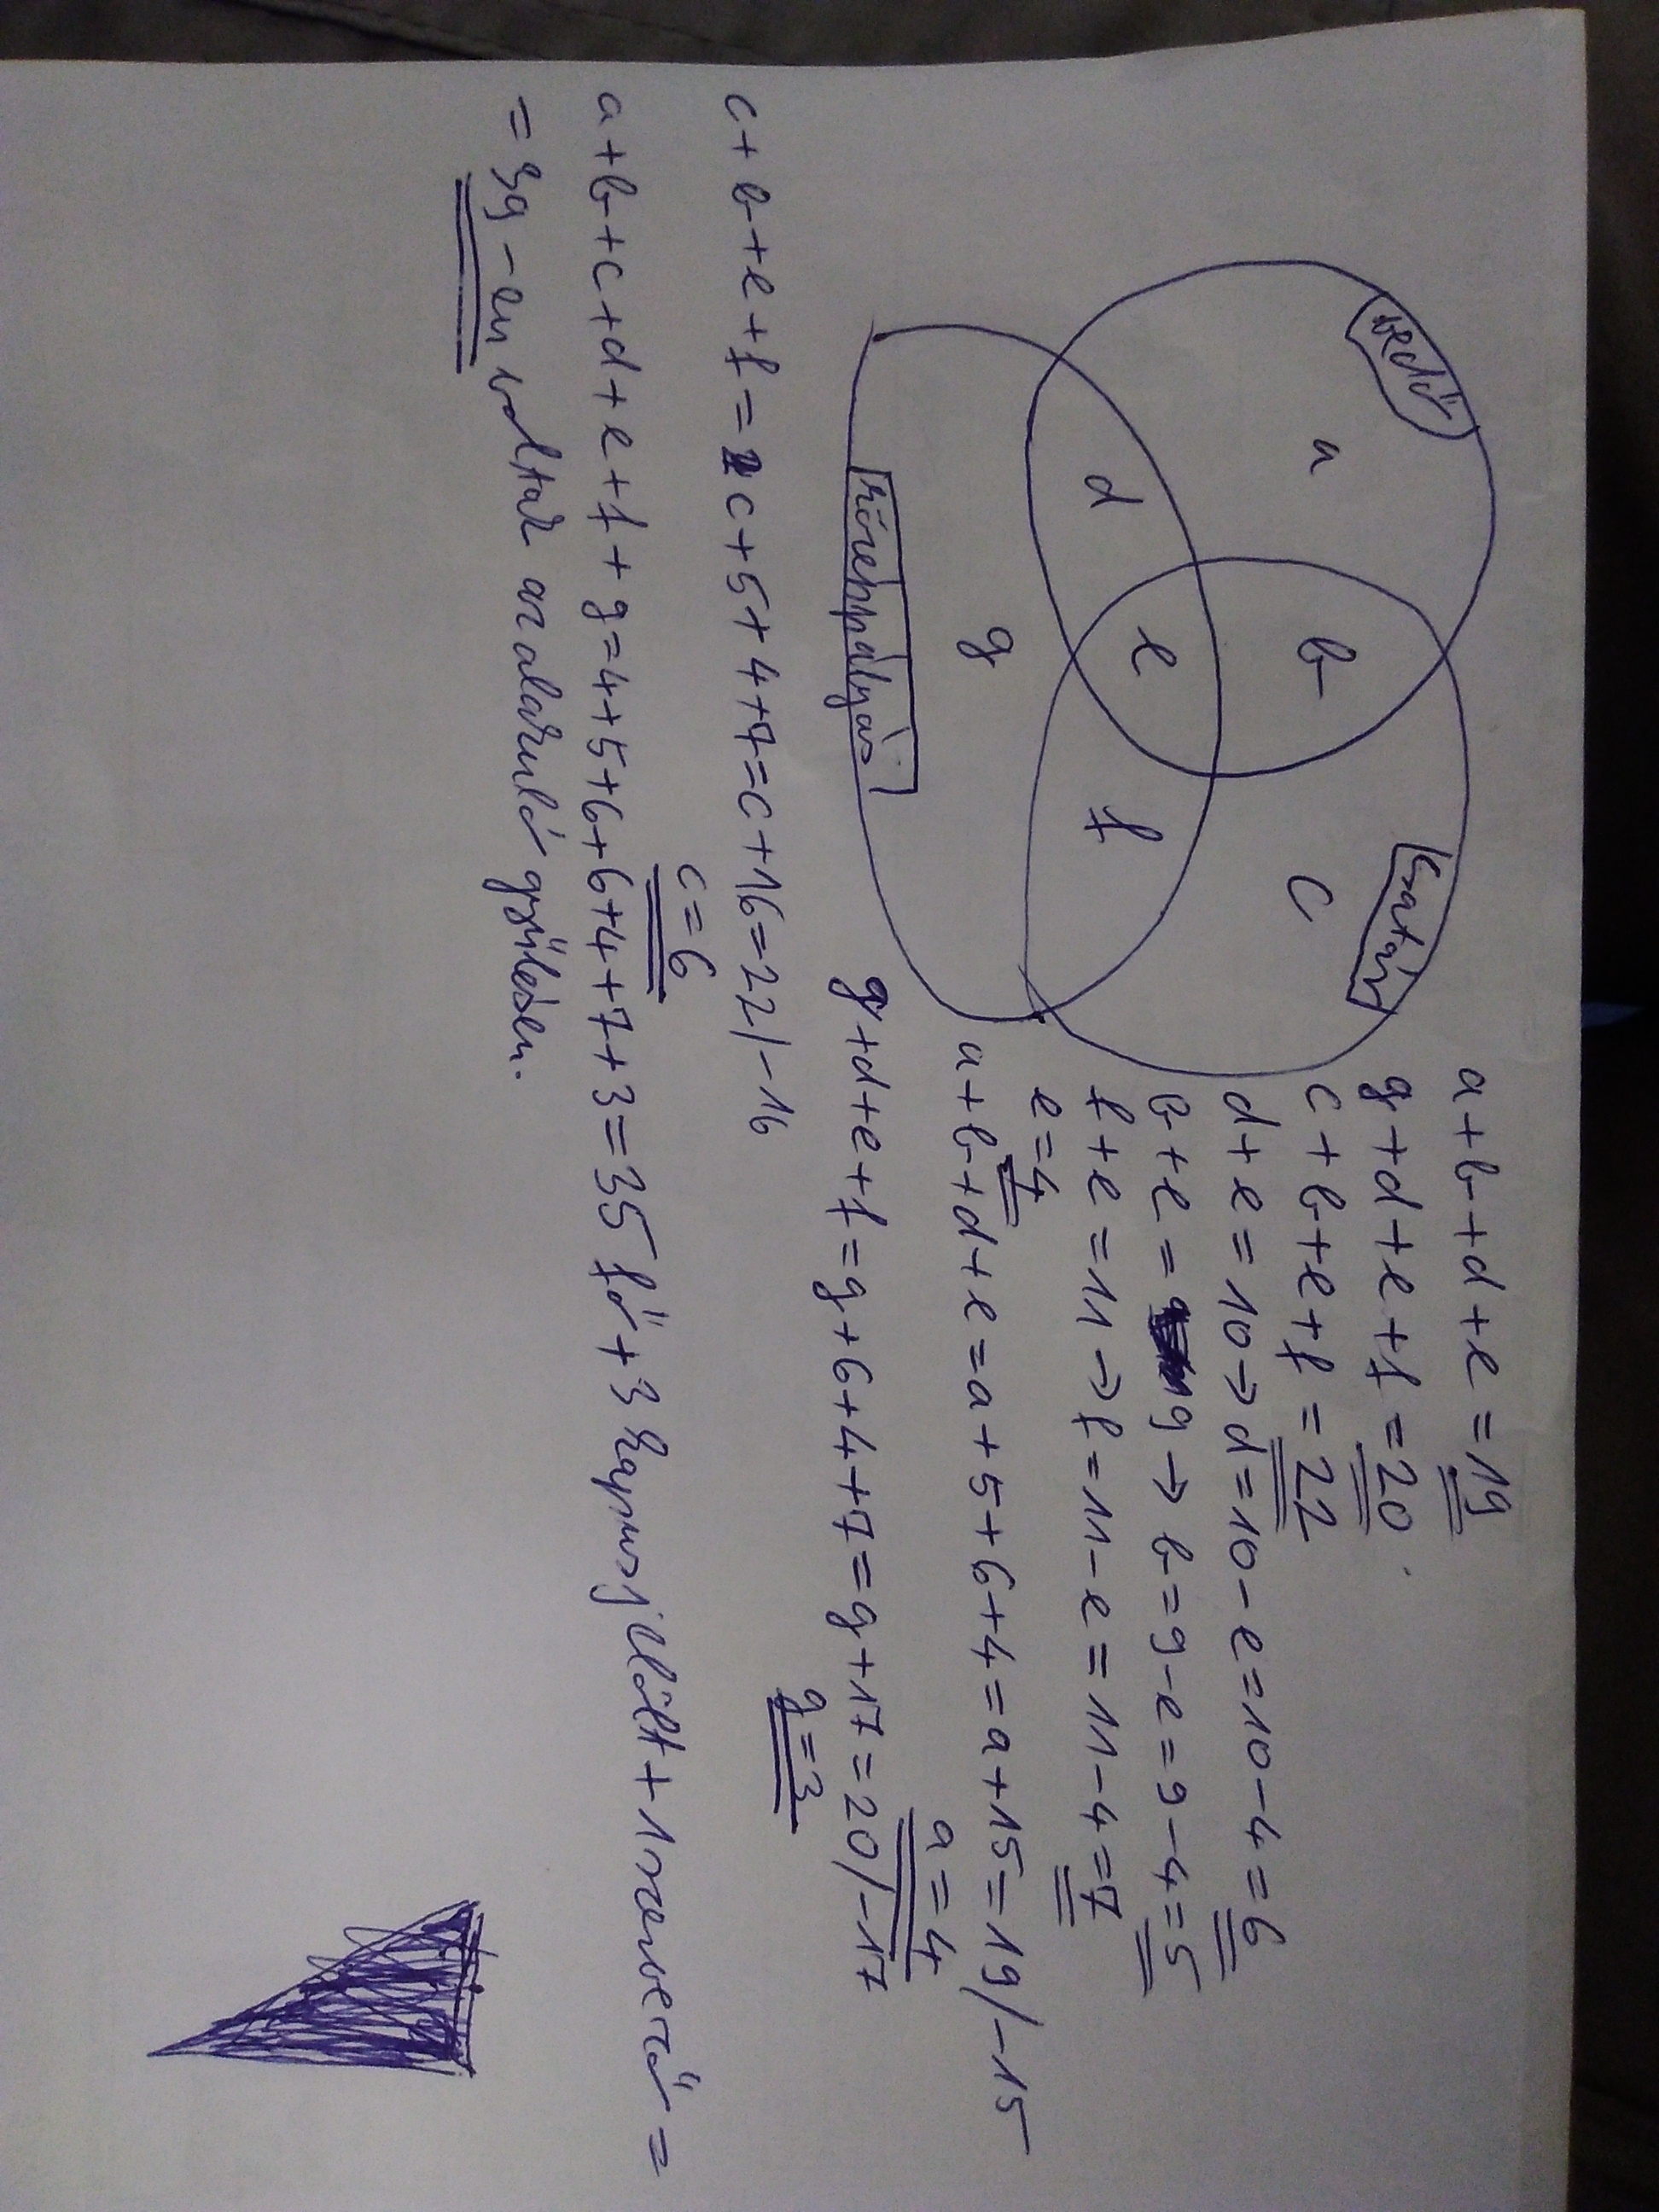 védő
a
b
csatár
c
d
e
f
g
középpályás
a+b+d+e=19
g+d+e+f=20
c+b+e+f=22
d+e=10→d=10-e=10-4=6
b+e=9→b=9-e=9-4=5
f+e=11→f=11-e=11-4=7
e=4
a+b+d+e=a+5+6+4=a+15=19/-15
a=4
g+d+e+f=g+6+4+7=g+17=20/-17
g=3
c+b+e+f=c+5+4+7=c+16=22/-16
c=6
a+b+c+d+e+f+g=4+5+6+6+4+7+3=35 fő+3 kapusjelölt+1 szervező=
=39-en voltak az alakuló gyűlésen.